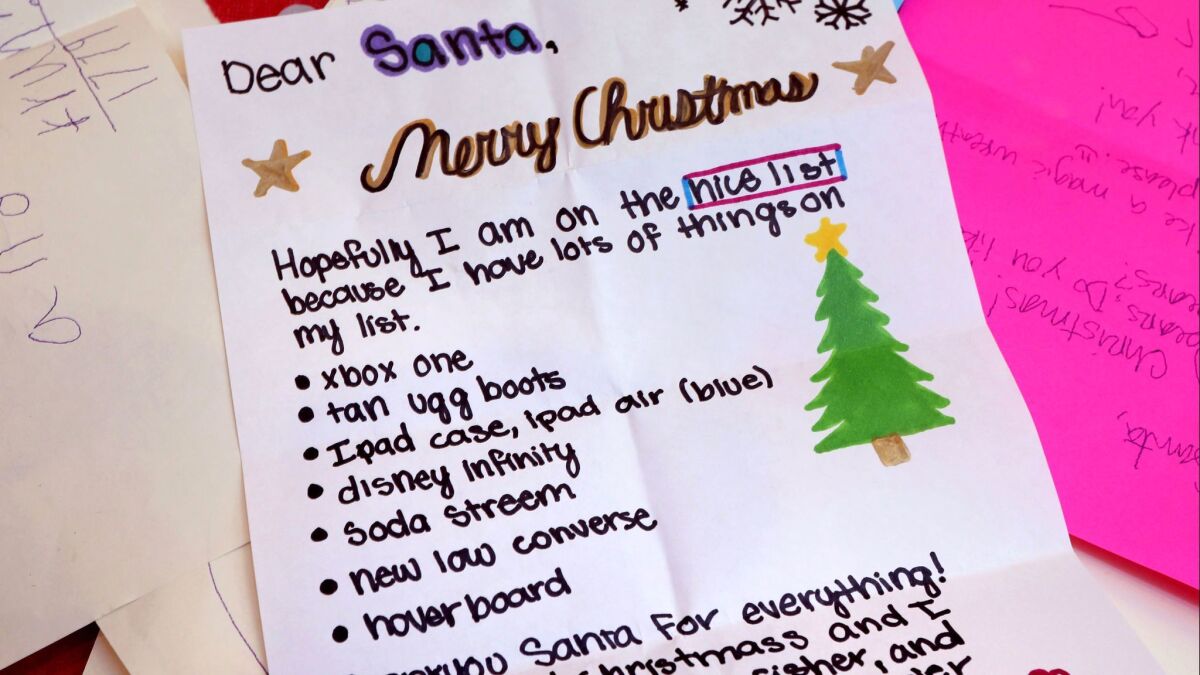 Dear Santa,
Merry Christmas
Hopefully I am on the nice list
because I have lots of things on
my list.
• xbox one
• tan ugg boots
• Ipad case, ipad air (blue)
• disney infinity
• soda streem
• new low converse
• hoverboard
Santa For everything!
christmass and I
sister, and
ke a magic wreath
please.
k you!
ears? Do you lik
Christmas!